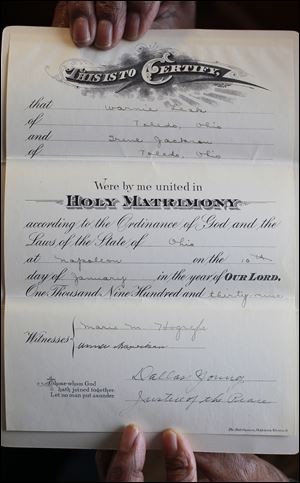 THIS IS TO CERTIFY,
that Warnie
of Toledo, Ohio
and Irene Jackson
of Toledo, Ohio
Were by me united in
HOLY MATRIMONY
according to the Ordinance of God and the
Laws of the State of Ohio
at Napoleon on the 10th
day of January in the year of OUR LORD.
One Thousand Nine Hundred and thirty-nine
Marie M.
Witnesses
Dallas Young
Justice of the Peace
Those whom God
hath joined together
Let no man put asunder